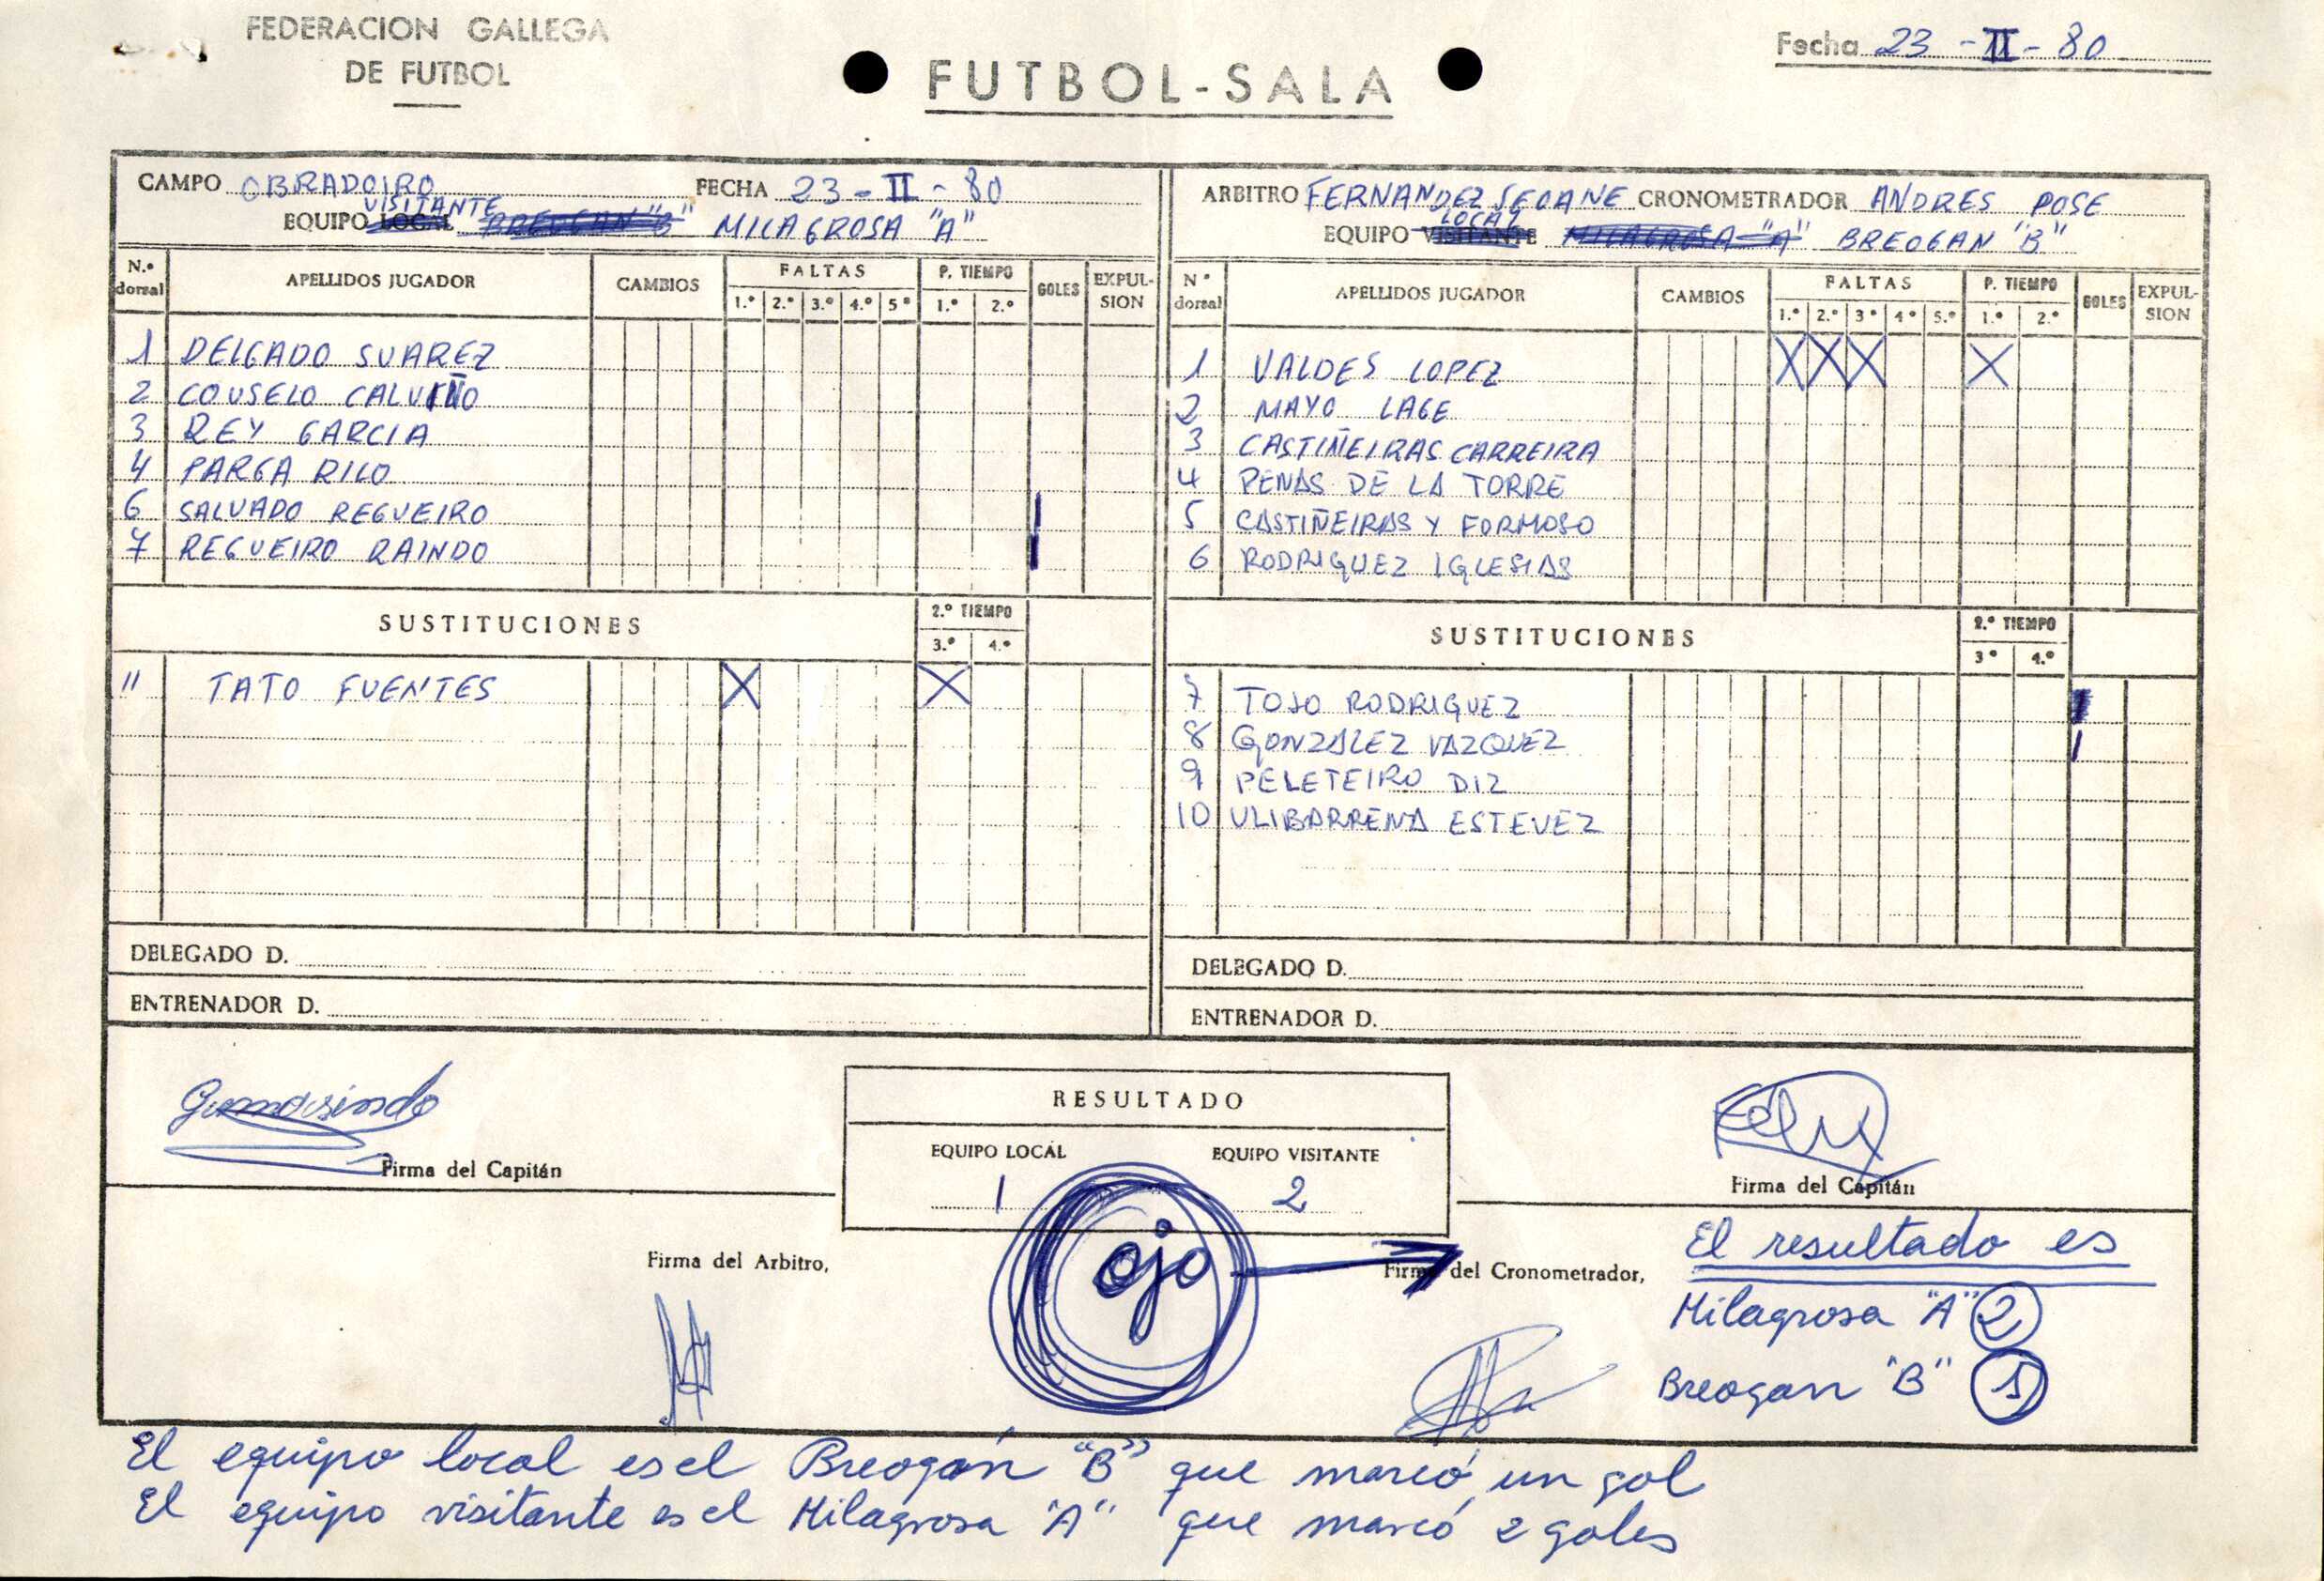 FEDERACION GALLEGA
DE FUTBOL
FUTBOL-SALA
Fecha 23-II-80
CAMPO OBRADOIRO FECHA 23-II-80
VISITANTE
EQUIPO LOCAL BREOGAN "B" MILAGROSA "A"
N.º dorsal APELLIDOS JUGADOR CAMBIOS FALTAS 1.º 2.º 3.º 4.º 5º P. TIEMPO 1.º 2.º GOLES EXPULSION
1 DELGADO SUAREZ
2 COUSELO CALVIÑO
3 REY GARCIA
4 PARGA RILO
6 SALVADO REGUEIRO |
7 REGUEIRO RAINDO |
SUSTITUCIONES 2.º TIEMPO 3.º 4.º
11 TATO FUENTES X X
DELEGADO D.
ENTRENADOR D.
ARBITRO FERNANDEZ SEOANE CRONOMETRADOR ANDRES POSE
LOCAL
EQUIPO VISITANTE MILAGROSA "A" BREOGAN "B"
Nº dorsal APELLIDOS JUGADOR CAMBIOS FALTAS 1.º 2.º 3º 4º 5.º P. TIEMPO 1.º 2.º GOLES EXPULSION
1 VALDES LOPEZ X X X X
2 MAYO LAGE
3 CASTIÑEIRAS CARREIRA
4 PENAS DE LA TORRE
5 CASTIÑEIRAS Y FORMOSO
6 RODRIGUEZ IGLESIAS
SUSTITUCIONES 2.º TIEMPO 3º 4.º
7 TOJO RODRIGUEZ
8 GONZALEZ VAZQUEZ |
9 PELETEIRO DIZ
10 ULIBARRENA ESTEVEZ
DELEGADO D.
ENTRENADOR D.
Gumersindo
Firma del Capitán
RESULTADO
EQUIPO LOCAL EQUIPO VISITANTE
1 2
Firma del Capitán
Firma del Arbitro,
ojo
Firma del Cronometrador,
El resultado es
Milagrosa "A" 2
Breogan "B" 1
El equipo local es el Breogán "B" que marcó un gol
El equipo visitante es el Milagrosa "A" que marcó 2 goles